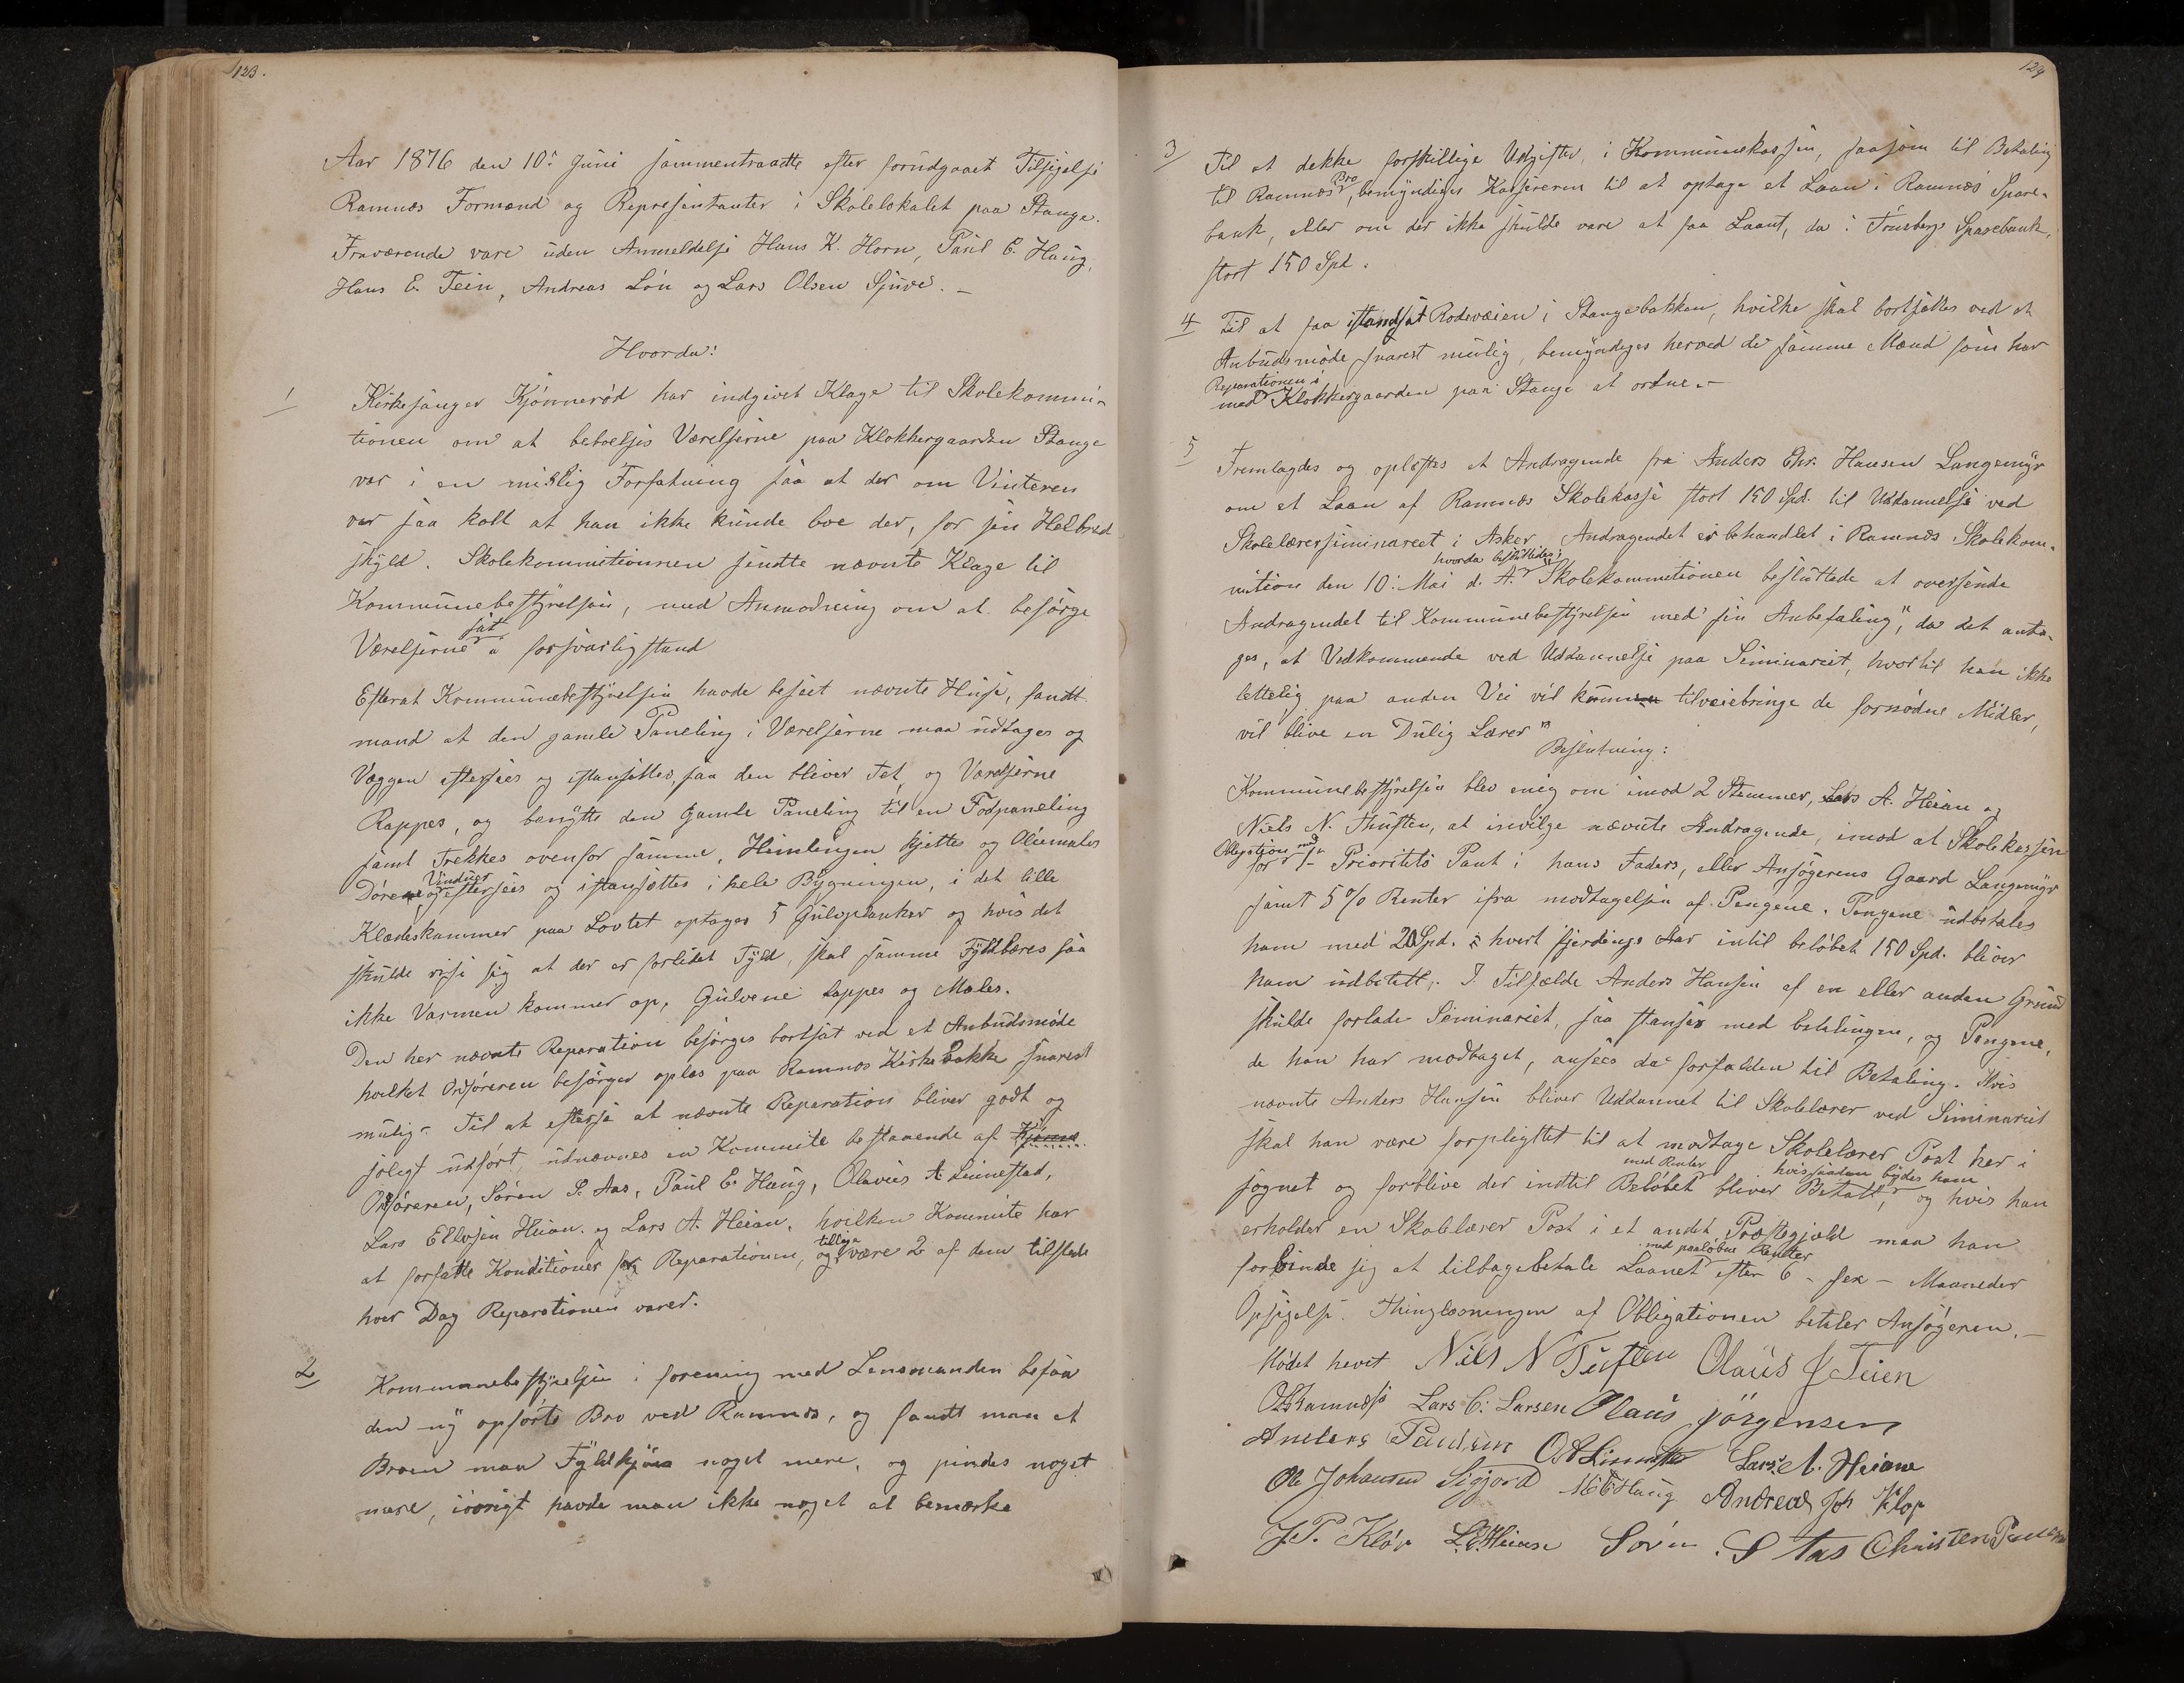 123.
Aar 1876 den 10: Juni sammentraadte efter forudgaaet Tilsigelse
Ramnæs Formænd og Representanter i Skolelokalet paa Stange.
Fraværende vare uden Anmeldelse Hans K. Horn, Paul C. Haug,
Hans E. Teien, Andreas Lön og Lars Olsen Sjuve. –
Hvorda:
1/
Kirkesanger Kjönneröd har indgivet Klage til Skolekommi-
tionen om at beboelses Værelserne paa Klokkergaarden Stange
var i en mislig Forfatning saa at der om Vinteren
var saa kolt at han ikke kunde boe der, for sin Helbred
skyld. Skolekommitionnen sendte nævnte Klage til
Kommunebestyrelsen, med Anmodning om at besörge
Værelserne sat i forsvarlig stand
Efterat Kommunebestyrelsen havde beseet nævnte Huse, fandt
mand at den gamle Paneling i Værelserne maa udtages og
Væggen eftersees og istansættes, saa den bliver tet, og Værelserne
Rappes, og benytte den Gamle Paneling til en Fodpaneling
samt Trekkes ovenfor samme, Himlingen kjettes og Oliemales
Dörene og Vinduer eftersees og istansættes i hele Bygningen, i det lille
Klædeskammer paa Lovtet optages 5 Gulvplanker og hvis det
skulde vise sig at der er forlidet Fyld, skal samme Fyldbæres saa
ikke Varmen kommer op, Gulvene lappes og Males.
Den her nævnte Reparation besörges bortsat ved et Anbudsmöde
hvilket Ordföreren besörger oplæs paa Ramnæs Kirkebakke snarest
mulig. Til at efterse at nævnte Reparation bliver godt og
soligt udfört, udnævnes en Kommite bestaaende af
Ordföreren, Sören S. Aas, Paul C. Haug, Olavus A Linnestad,
Lars Ellefsen Heian. og Lars A. Heian, hvilken Kommite har
at forfatte Konditioner for Reparationen, og tillige være 2 af dem tilstede
hver Dag Reparationen varer.
2/
Kommunebestyrelsen i forening med Lensmanden besaa
den ny opförte Bro ved Ramnæs, og fandt man at
Broen maa Fyldkjöres noget mere, og pindes noget
mere, iövrigt havde man ikke noget at bemærke
124
3/
Til at dekke forskillige Udgifter, i Kommunekassen, saasom til Betaling
til Ramnæs Bro, bemyndiges Kassereren til at optage et Laan i Ramnæs Spare-
bank, eller om der ikke skulde være at faa Laant, da i Tönsbergs Sparebank,
stort 150 Spd.
4/
Til at faa istandsat Rodeveien i Stangebakken, hvilke skal bortsættes ved et
Anbudsmöde snarest mulig, bemyndiges herved de samme Mænd som har
med Reparationen i Klokkergaarden paa Stange at ordne. –
5/
Fremlagdes og oplæstes et Andragende fra Anders Chr. Hansen Langemyr
om et Laan af Ramnæs Skolekasse stort 150 Spd. til Uddannelse ved
Skolelærerseminareet i Asker, Andragendet er behandlet i Ramnæs Skolekom-
mition den 10: Mai d. A. hvorda besluttedes: Skolekommitionen besluttede at oversende
Andragendet til Kommunebestyrelsen med sin Anbefaling", da det anta-
ges, at Vedkommende ved Uddannelse paa Seminariet, hvortil han ikke
lettelig paa anden Vei vil kunne tilveiebringe de fornödne Midler,
vil blive en Dulig Lærer"
Beslutning:
Kommunebestyrelsen blev enig om imod 2 Stemmer, Lars A. Heian og
Niels N. Thuften, at invilge nævnte Andragende, imod at Skolekassen
for Obligation med 1ste Prioritets Pant i hans Faders, eller Ansögerens Gaard Langemyr
samt 5 % Renter ifra modtagelsen af Pengene. Pengene udbetales
ham med 20 Spd. hvert fjerdings Aar intil belöbet 150 Spd. bliver
ham udbetalt. I Tilfælde Anders Hansen af en eller anden Grund
skulde forlade Seminariet, saa stanses med betalingen, og Pengene,
de han har modtaget, ansees da forfalden til Betaling. Hvis
nævnte Anders Hansen bliver Uddannet til Skolelærer ved Seminariet
skal han være forpligttet til at modtage Skolelærer Post her i
sognet hvis saadan bydes ham og forblive der indtil Belöbet med Renter bliver Betalt, og hvis han
erholder en Skolelærer Post i et andet Præstegjæld maa han
forbinde sig at tilbagebetale Laanet med paalöbne Renter efter 6 – sex – Maaneder
Opsigelse. Thinglæsningen af Obligationen betaler Ansögeren. –
Mödet hevet Nils N Tuften Olaus J Teien
Lars C. Larsen Olaus Jörgensen
Anders Paulsen Lars A. Heian
Ole Johansen Sigjord Haug Andreas Joh Klop
J. P. Klöv L. E. Heian Sören S Aas Christen Paulsen